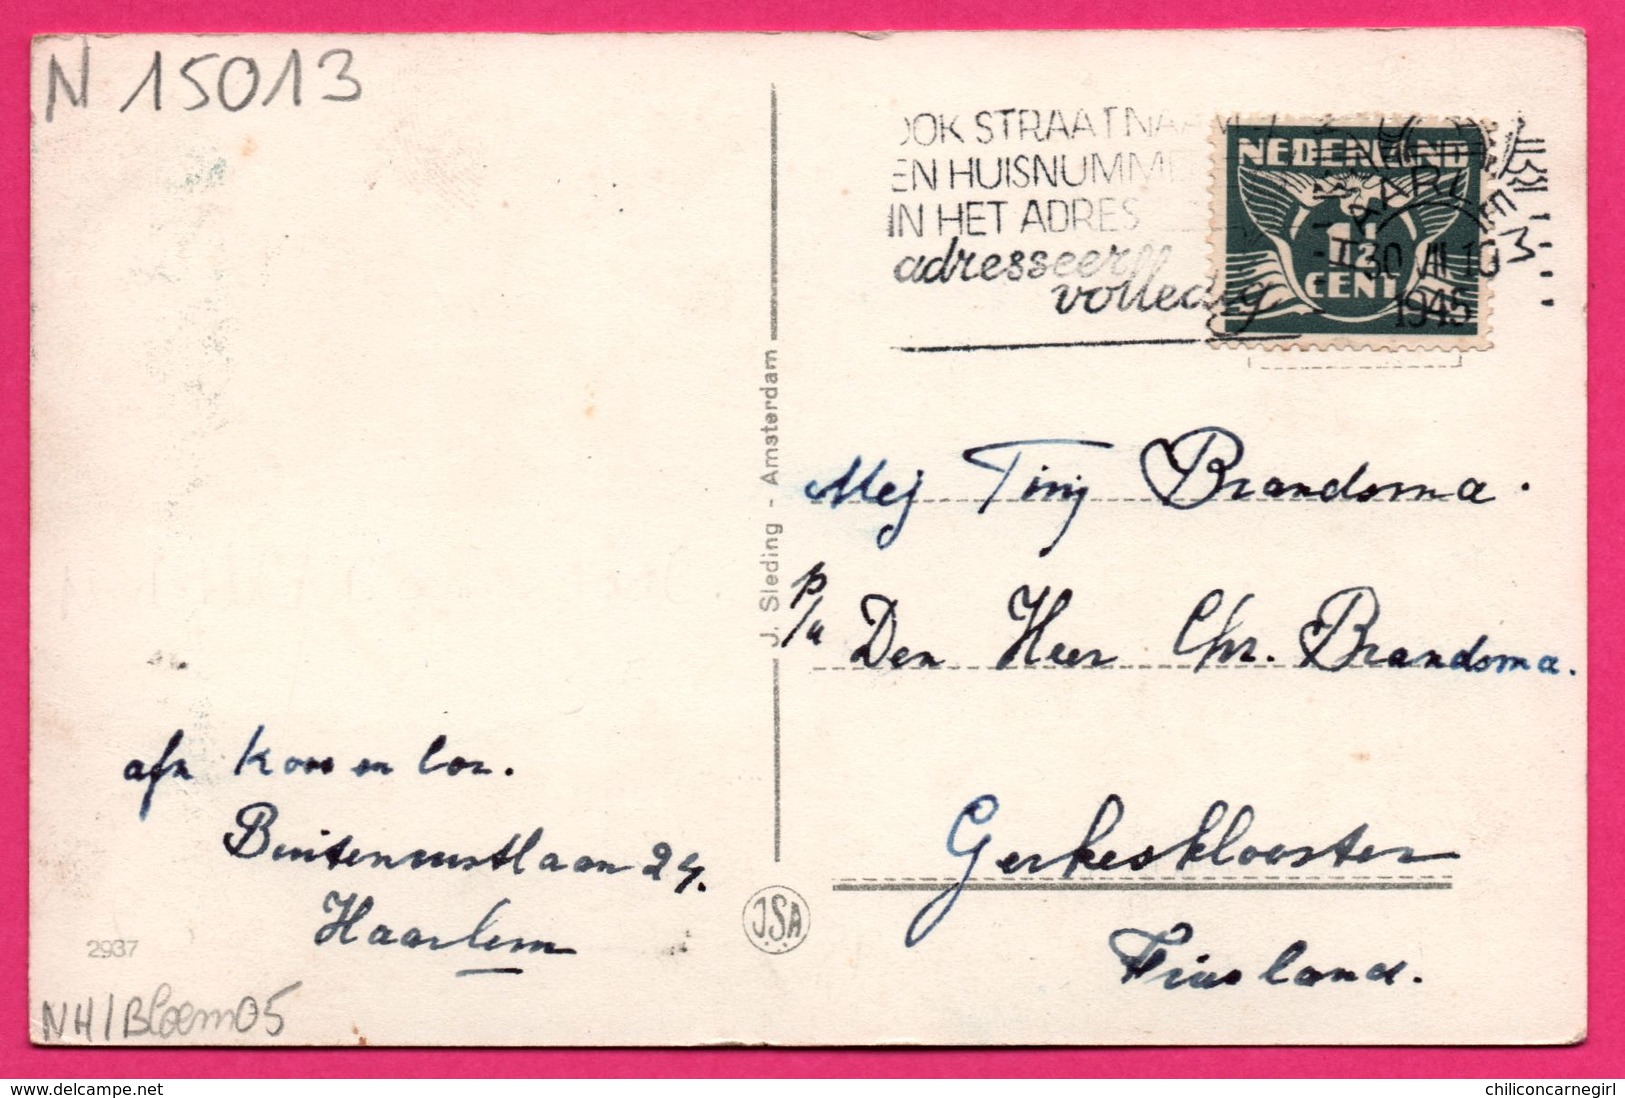 N 15013
OOK STRAATNAAM
EN HUISNUMMER
IN HET ADRES
adresseer
volledig
NEDERLAND
1½
CENT
HAARLEM
30 VIII 10
1945
J. Sleding - Amsterdam
Mej Tiny Brandsma.
p/a Den Heer Chr. Brandsma.
Gerkesklooster
Friesland.
afz Koos en Cor.
Buitenrustlaan 24.
Haarlem
J.S.A
2937
NH/Bloem05
delcampe.net
chiliconcarnegirl